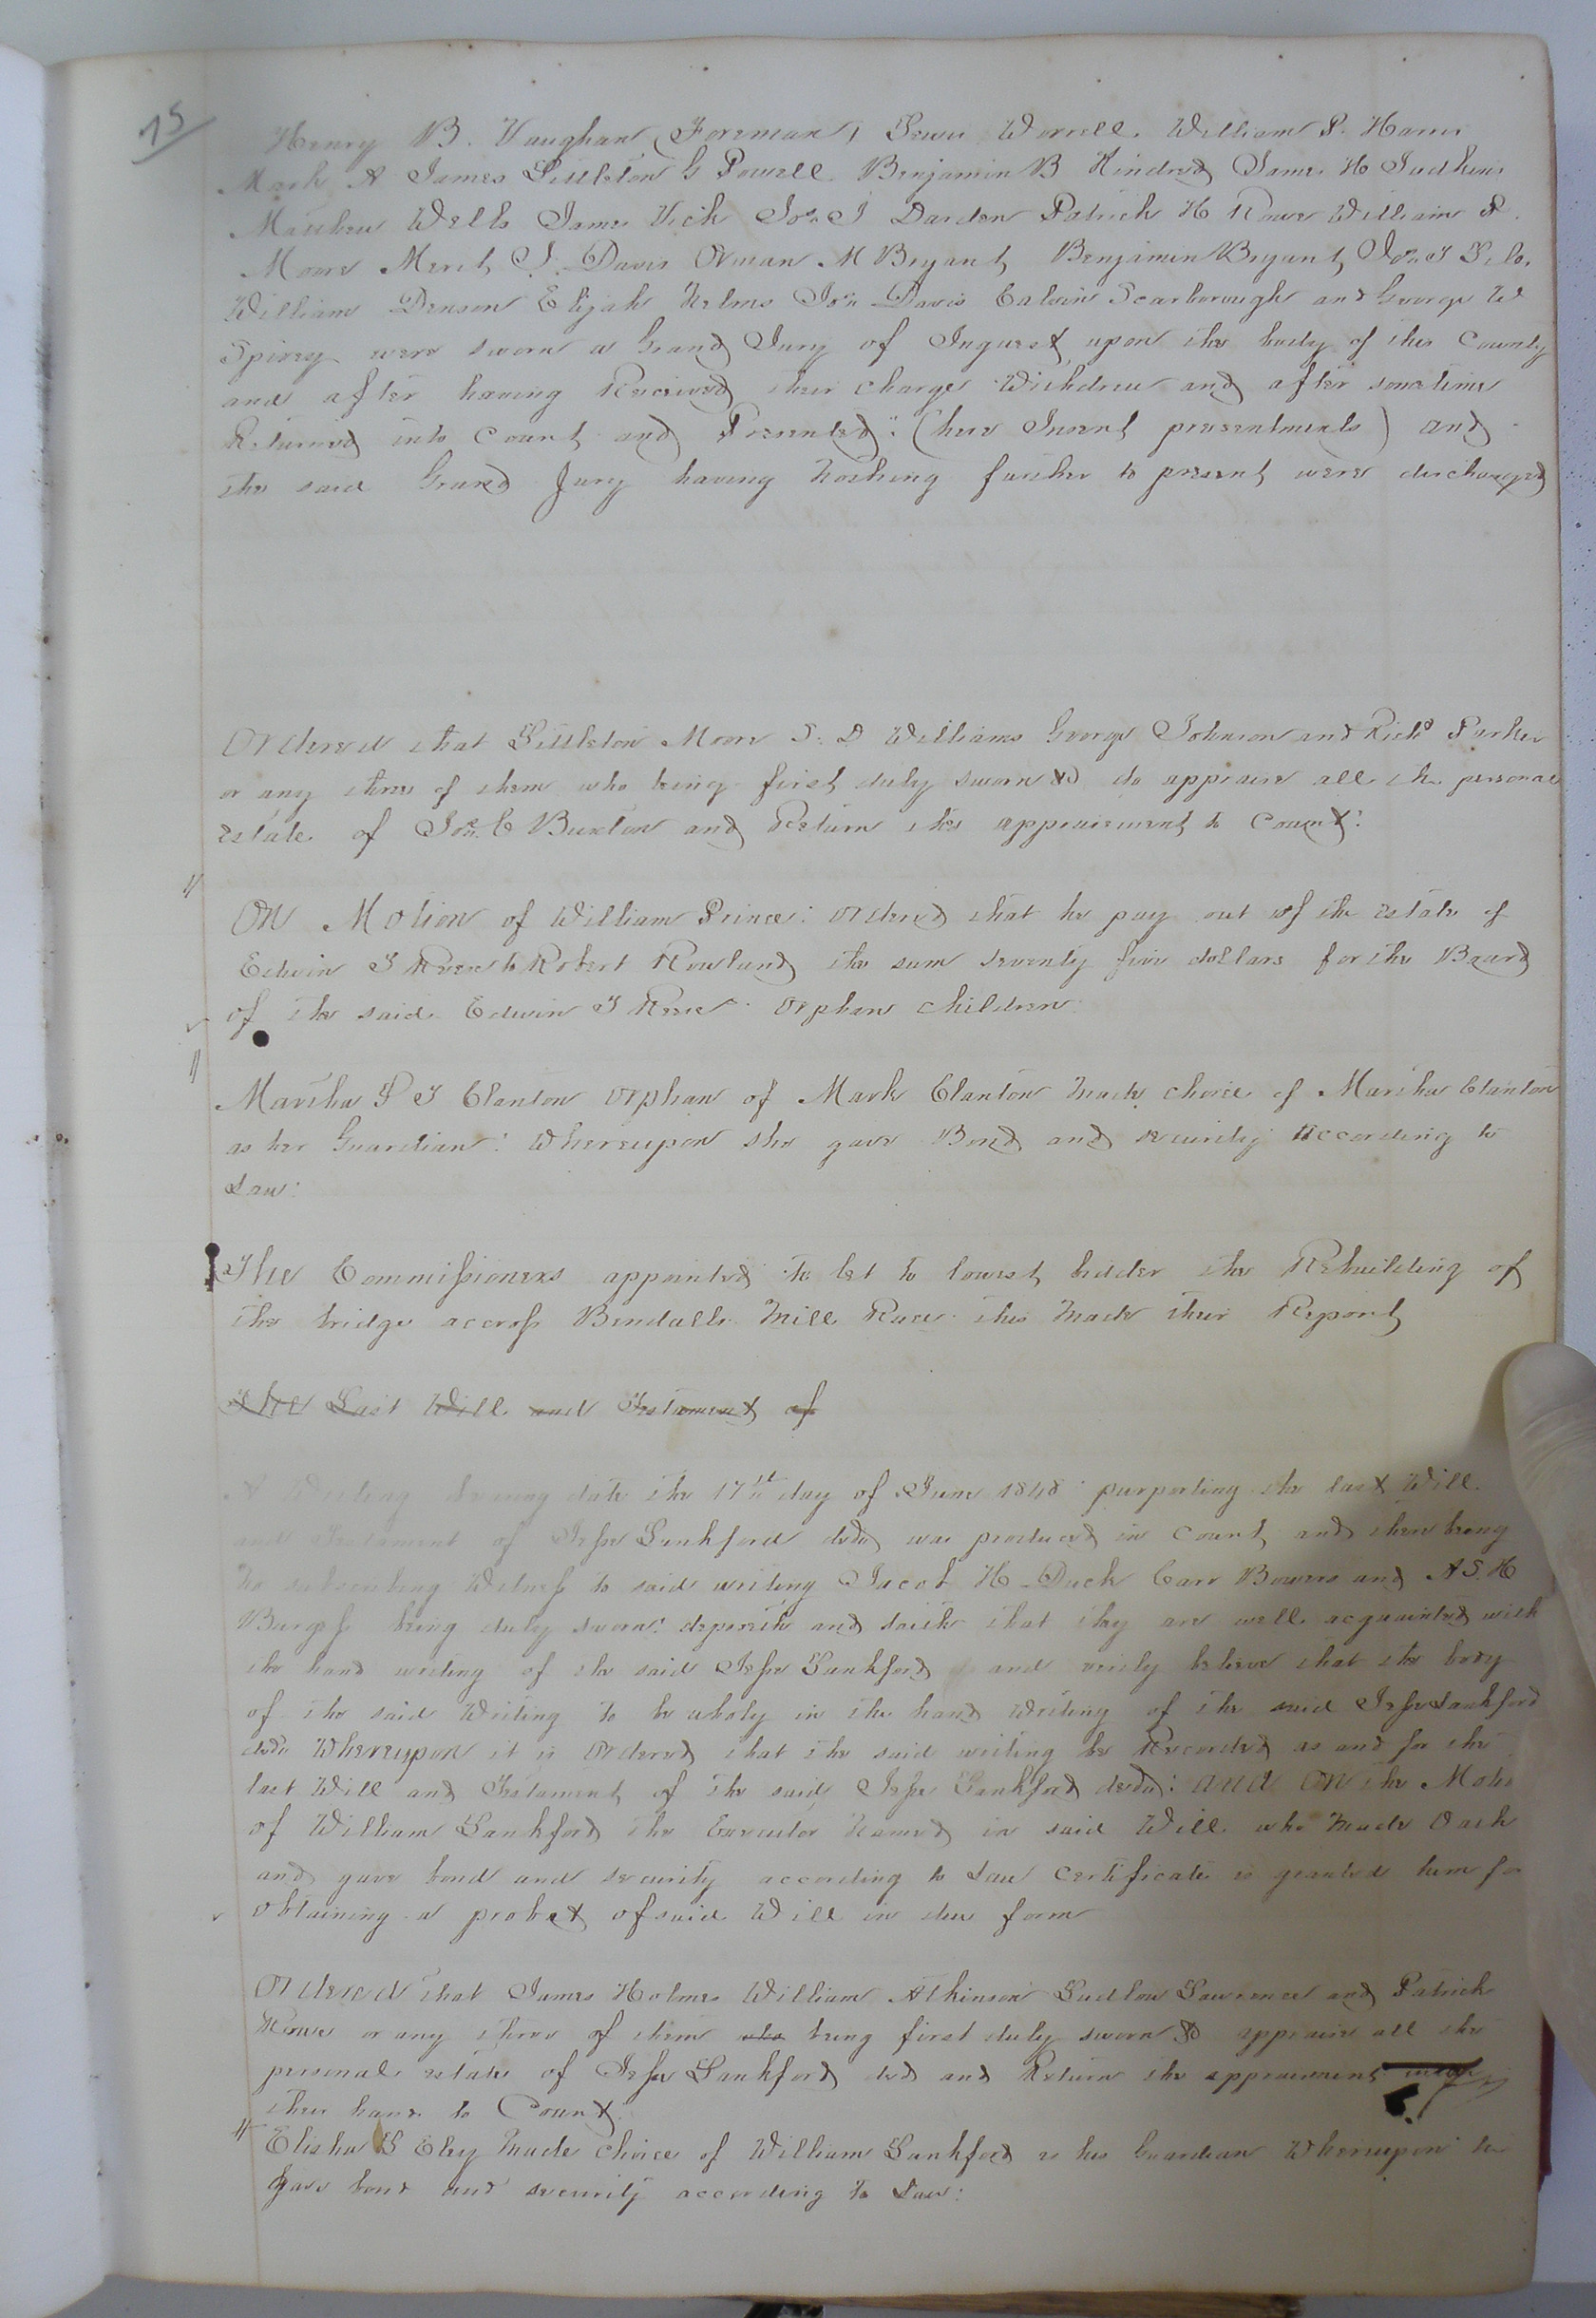 75
Henry B. Vaughan Foreman, Worrell. William P. Harris
Mark A James Littleton G Powell Benjamin B Kindred James H Judkins
Matthew Wells James Vick Jos. J Darden Patrick H Rowe William P.
Moore Merit J. Davis Orman M Bryant Benjamin Bryant Jos. J
William Denson Elijah Helms Jos. Davis Calvin Scarborough and George W
Spivey were sworn a Grand Jury of Inquest upon the body of this County
and after having Received their charge Withdrew and after sometime
Returned into Court and Presented: (here Insert presentments) and
the said Grand Jury having Nothing further to present were discharged
Ordered that Littleton Moore S. D Williams George Johnson and Richd Parker
or any three of them who being first duly sworn do appraise all the personal
estate of Jos. C Buxton and Return the appraisement to Court:
On Motion of William Prince: Ordered that he pay out of the estate of
Edwin J to Robert Rowland the sum seventy five dollars for the Board
of the said Edwin J Orphan children
Martha P J Clanton Orphan of Mark Clanton Made choice of Martha Clanton
as her Guardian: Whereupon she gave Bond and security According to
Law:
The Commissioners appointed to let to lowest bidder the Rebuilding of
the bridge accross Bendalls Mill Race this Made their Report
The Last Will and Testament of
A Writing bearing date the 17th day of June 1848 purporting the last Will
and Testament of Jesse Lankford decd was produced in Court and there being
No subscribing Witness to said writing Jacob H Duck Carr Bowers and A S. H
Burgess being duly sworn: deposeth and saith that they are well acquainted with
the hand writing of the said Jesse Lankford and verily believe that the body
of the said Writing to be wholy in the hand Writing of the said Jesse Lankford
decd. Whereupon it is Ordered that the said writing be Recorded as and for the
last Will and Testament of the said Jesse Lankford decd: And On the Motio
of William Lankford the Executor Named in said Will who Made Oath
and gave bond and security according to Law Certificate is granted him for
obtaining a probat of said Will in due form
Ordered that James Holmes William Atkinson Ludlow Lawrence and Patrick
Rowe or any three of them who being first duly sworn appraise all the
personal estate of Jesse Lankford decd and Return the appraisement
their to Court:
Elisha Eley Made Choice of William Lankford as his Guardian Whereupon he
gave bond and security according to Law: